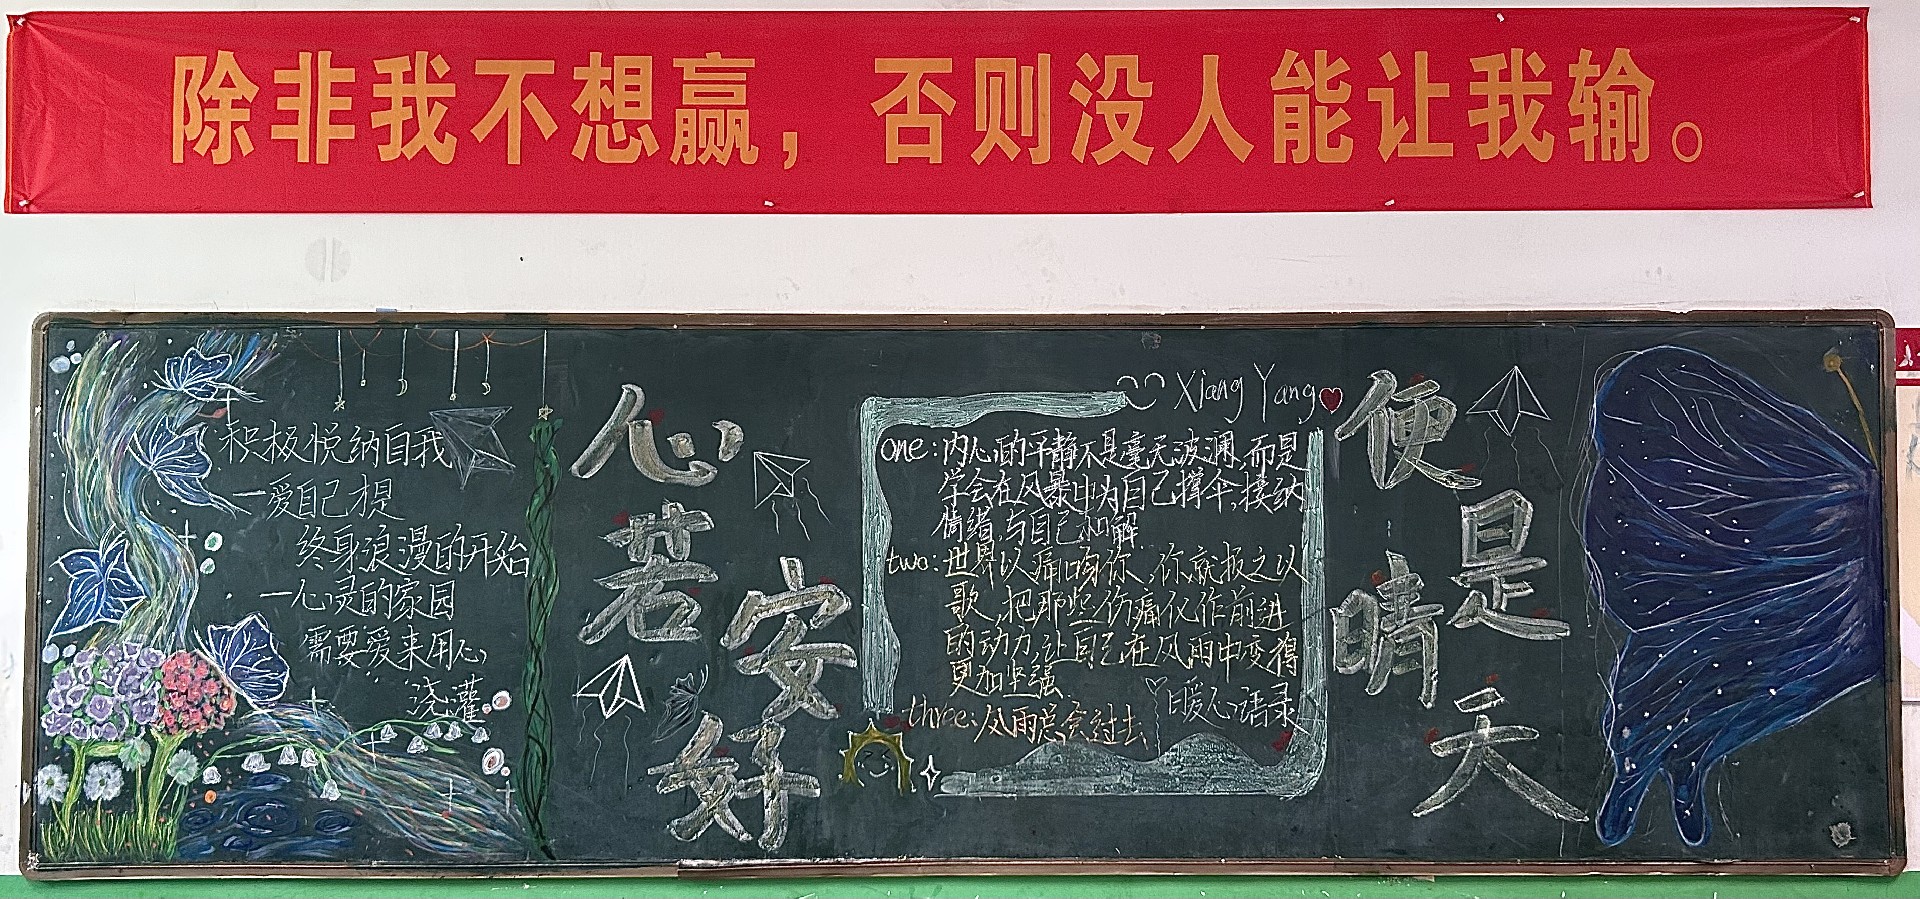 除非我不想赢，否则没人能让我输。
积极悦纳自我
一爱自己是
终身浪漫的开始
一心灵的家园
需要爱来用心
浇灌
心若
安好
Xiang Yang
one：内心的平静不是毫无波澜，而是
学会在风暴中为自己撑伞，接纳
情绪，与自己和解
two：世界以痛吻你，你就报之以
歌，把那些伤痛化作前进
的动力，让自己在风雨中变得
更加坚强
three：风雨总会过去
暖心语录
便是
晴天